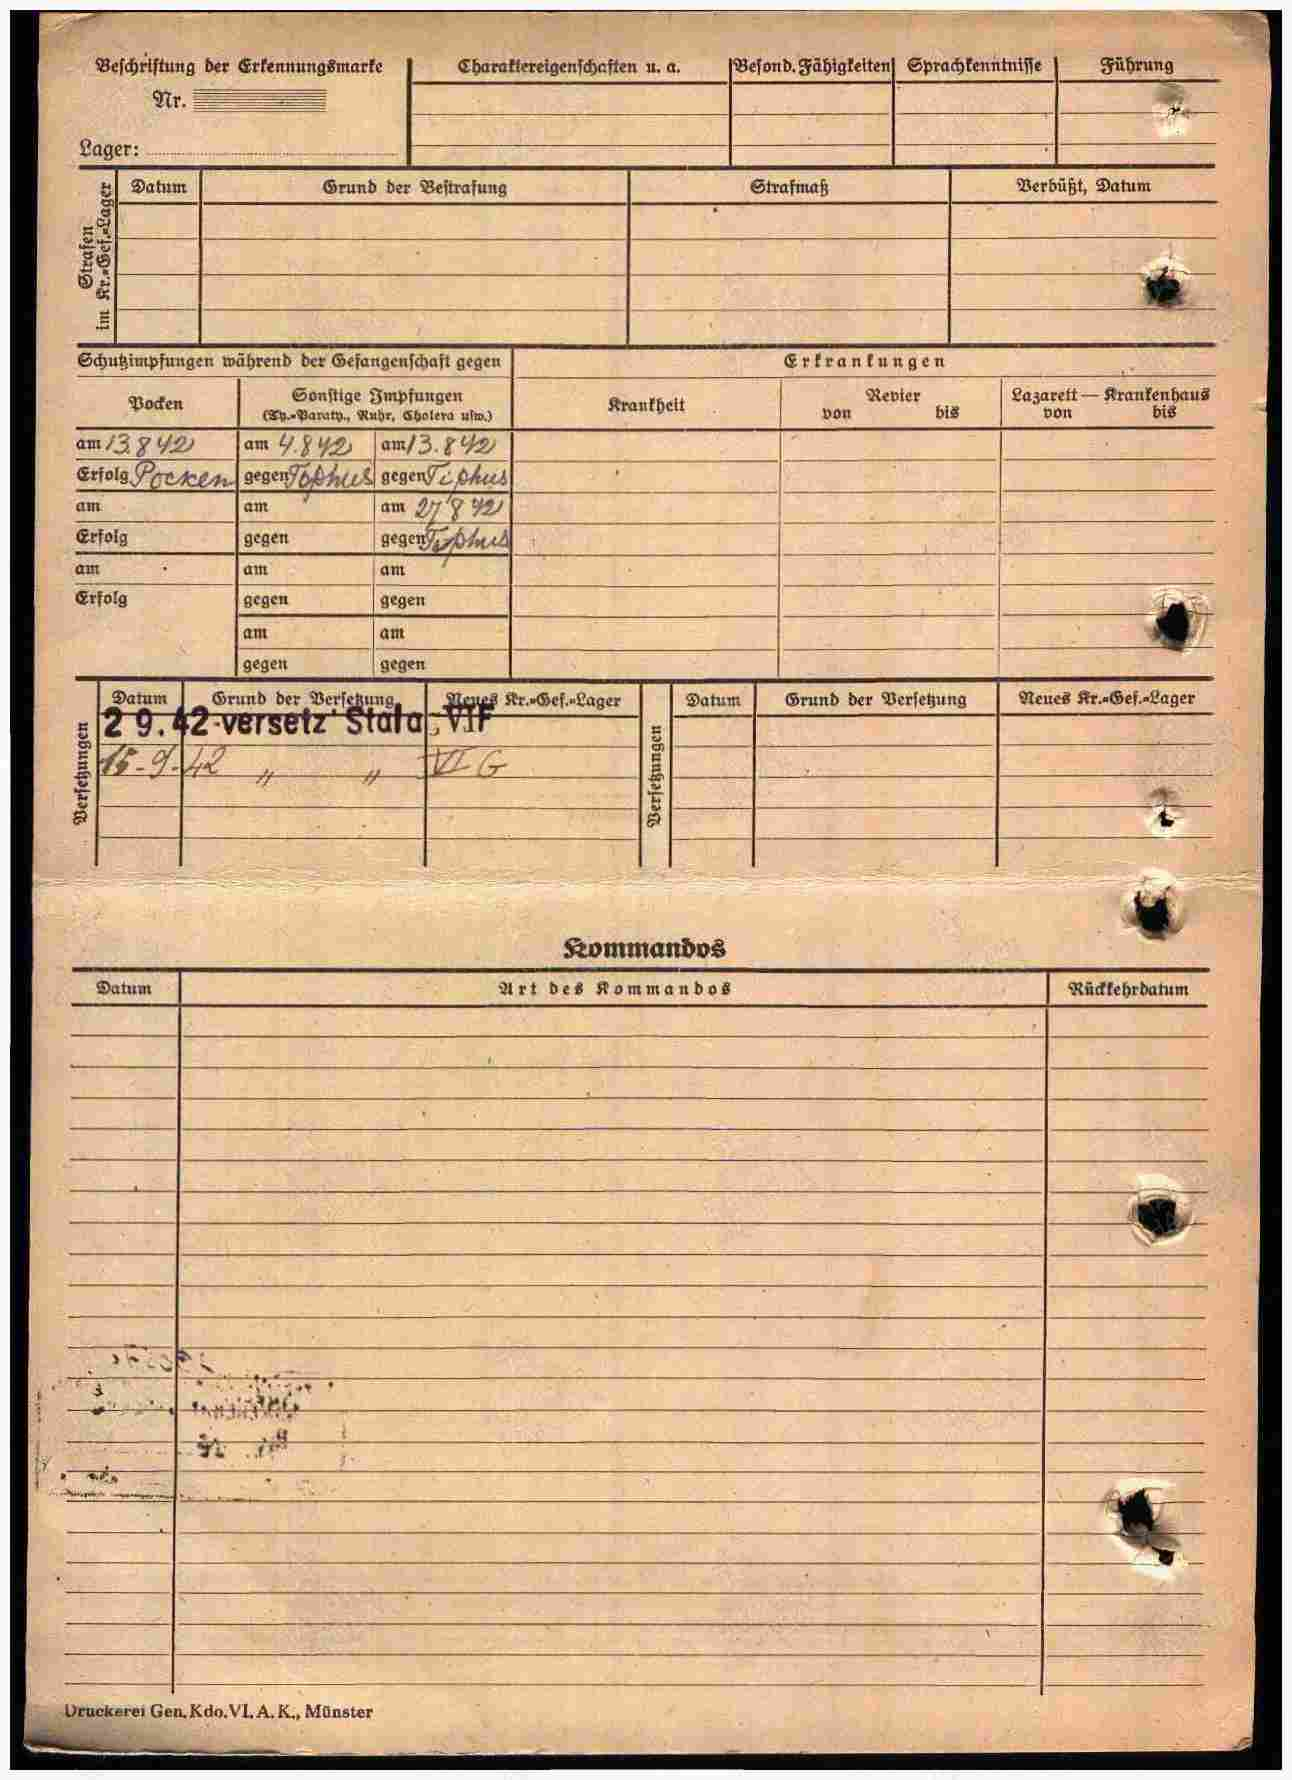 Beschriftung der Erkennungsmarke
Nr.
Lager:
Charaktereigenschaften u. a.
Besond. Fähigkeiten
Sprachkenntnisse
Führung
Strafen
im Kr.=Gef.=Lager
Datum
Grund der Bestrafung
Strafmaß
Verbüßt, Datum
Schutzimpfungen während der Gefangenschaft gegen
Erkrankungen
Pocken
Sonstige Impfungen
(Ty.=Paraty., Ruhr, Cholera usw.)
Krankheit
Revier
von bis
Lazarett — Krankenhaus
von bis
am 13.8 42 am 4.8 42 am 13.8 42
Erfolg Pocken gegen Tophus gegen Tiphus
am am am 27 8 42
Erfolg gegen gegen Tiphus
am am am
Erfolg gegen gegen
am am
gegen gegen
Versetzungen
Datum Grund der Versetzung Neues Kr.=Gef.=Lager
2 9. 42 versetz Stala VI F
15-9-42 " " VI G
Versetzungen
Datum Grund der Versetzung Neues Kr.=Gef.=Lager
Kommandos
Datum Art des Kommandos Rückkehrdatum
Druckerei Gen. Kdo. VI. A. K., Münster